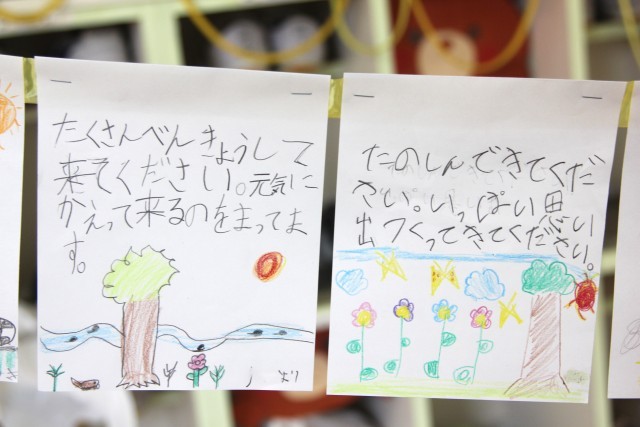 たくさんべんきょうして
来てください。元気に
かえって来るのをまってま
す。
たのしんできてくだ
さい。いっぱい思い
出つくってきてください。